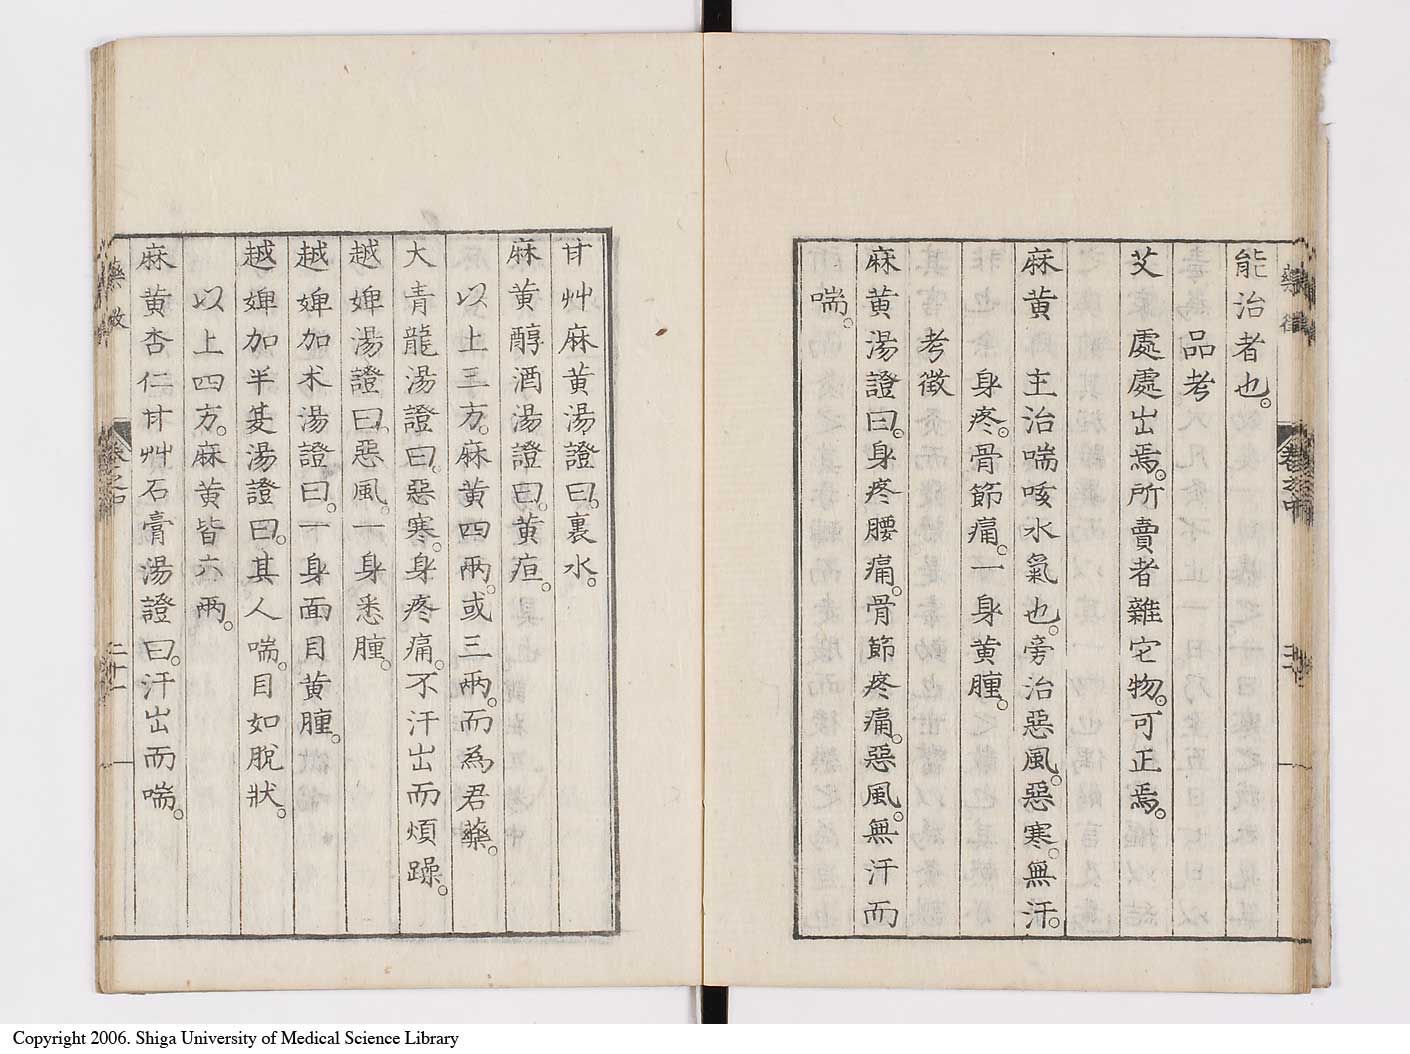 能治者也。
品考
艾　處處出焉。所賣者雜它物。可正焉。
麻黃　主治喘咳水氣也。旁治惡風。惡寒。無汗。
身疼。骨節痛。一身黃腫。
考徵
麻黃湯證曰。身疼腰痛。骨節疼痛。惡風。無汗而
喘。
甘艸麻黃湯證曰。裏水。
麻黃醇酒湯證曰。黃疸。
以上三方。麻黃四兩。或三兩。而為君藥。
大青龍湯證曰。惡寒。身疼痛。不汗出而煩躁。
越婢湯證曰。惡風。一身悉腫。
越婢加朮湯證曰。一身面目黃腫。
越婢加半夏湯證曰。其人喘。目如脫狀。
以上四方。麻黃皆六兩。
麻黃杏仁甘艸石膏湯證曰。汗出而喘。
二十一
Copyright 2006. Shiga University of Medical Science Library